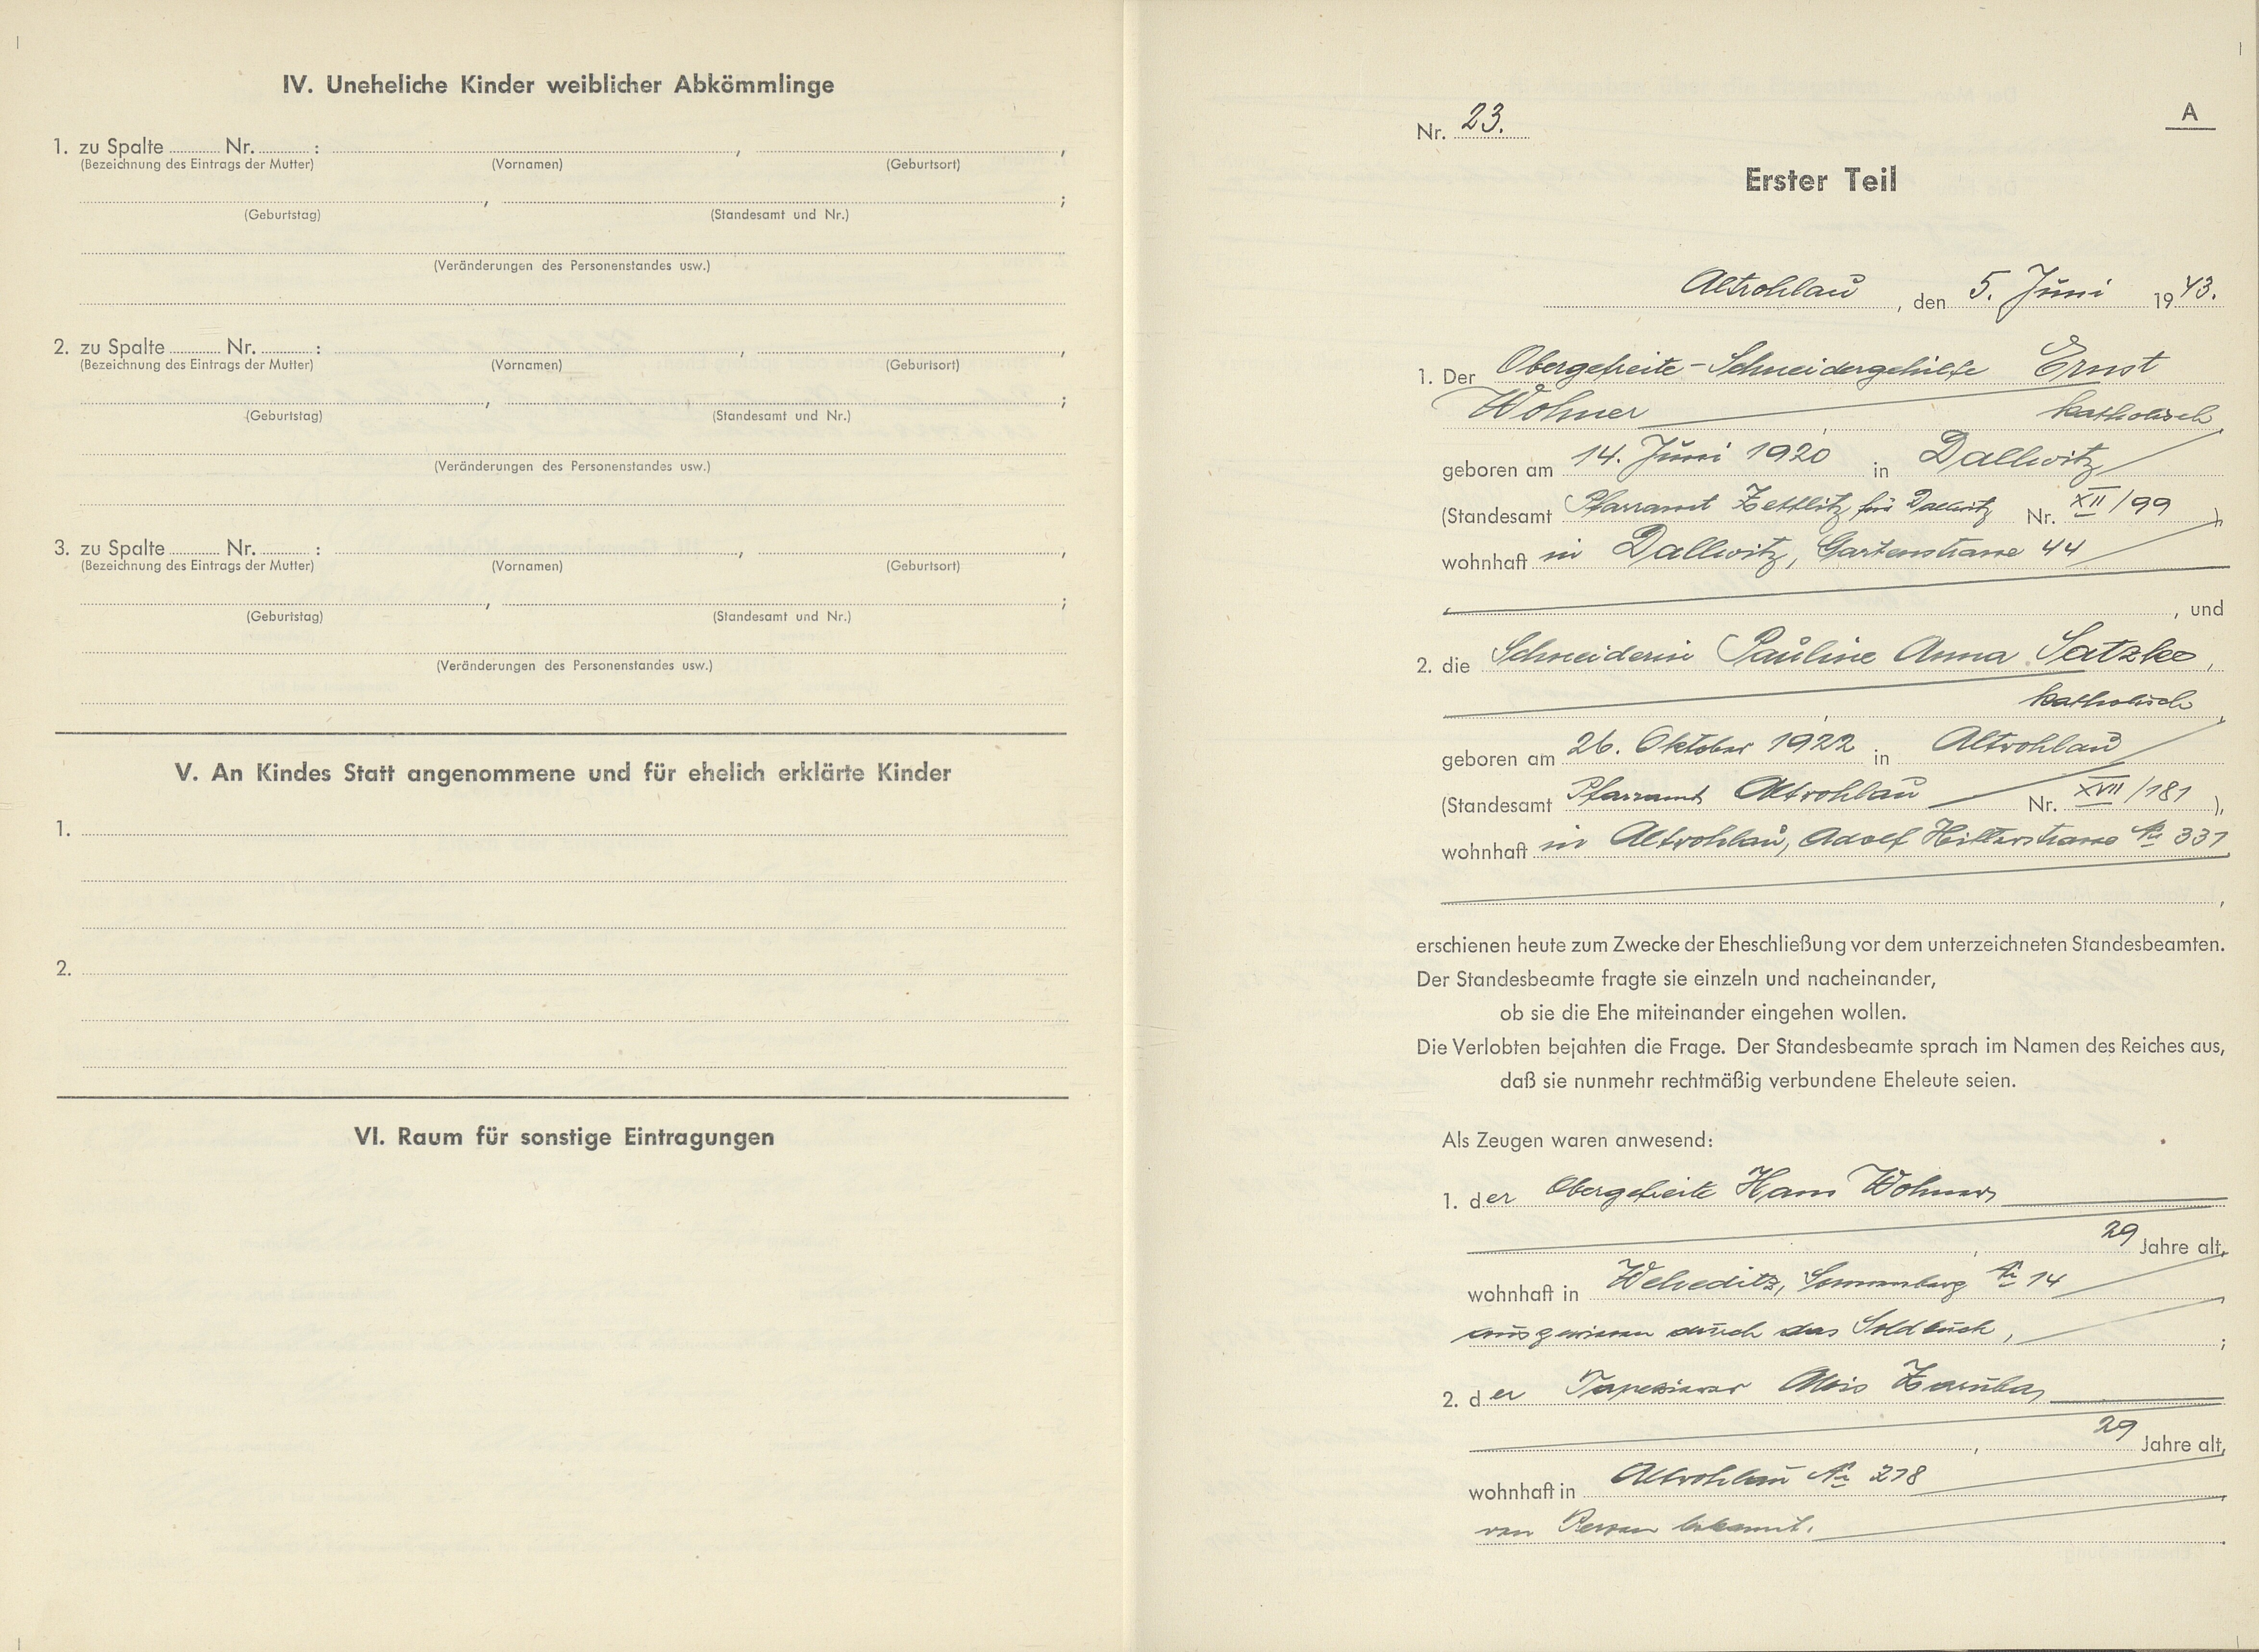 IV. Uneheliche Kinder weiblicher Abkömmlinge
1. zu Spalte ........ Nr. ........ : ........ , ........ ,
(Bezeichnung des Eintrags der Mutter) (Vornamen) (Geburtsort)
........ , ........ ;
(Geburtstag) (Standesamt und Nr.)
(Veränderungen des Personenstandes usw.)
2. zu Spalte ........ Nr. ........ : ........ , ........ ,
(Bezeichnung des Eintrags der Mutter) (Vornamen) (Geburtsort)
........ , ........ ;
(Geburtstag) (Standesamt und Nr.)
(Veränderungen des Personenstandes usw.)
3. zu Spalte ........ Nr. ........ : ........ , ........ ,
(Bezeichnung des Eintrags der Mutter) (Vornamen) (Geburtsort)
........ , ........ ;
(Geburtstag) (Standesamt und Nr.)
(Veränderungen des Personenstandes usw.)
V. An Kindes Statt angenommene und für ehelich erklärte Kinder
1.
2.
VI. Raum für sonstige Eintragungen
A
Nr. 23.
Erster Teil
Altrohlau, den 5. Juni 1943.
1. Der Obergefreite-Schneidergehilfe Ernst
Wohner , katholisch,
geboren am 14. Juni 1920 in Dallwitz
(Standesamt Pfarramt Zettlitz für Dallwitz Nr. XII/99 ),
wohnhaft in Dallwitz, Gartenstrasse 44
, und
2. die Schneiderin Pauline Anna Satzke,
, katholisch,
geboren am 26. Oktober 1922 in Altrohlau
(Standesamt Pfarramt Altrohlau Nr. XVII/181 ),
wohnhaft in Altrohlau, Adolf Hitlerstrasse Nr 331
,
erschienen heute zum Zwecke der Eheschließung vor dem unterzeichneten Standesbeamten.
Der Standesbeamte fragte sie einzeln und nacheinander,
ob sie die Ehe miteinander eingehen wollen.
Die Verlobten bejahten die Frage. Der Standesbeamte sprach im Namen des Reiches aus,
daß sie nunmehr rechtmäßig verbundene Eheleute seien.
Als Zeugen waren anwesend:
1. der Obergefreite Hans Wohner
, 29 Jahre alt,
wohnhaft in Weheditz, Sommerberg Nr 14
ausgewiesen durch das Soldbuch, ;
2. der Tapezierer Alois Zaruba
, 29 Jahre alt,
wohnhaft in Altrohlau Nr 218
von Person bekannt.